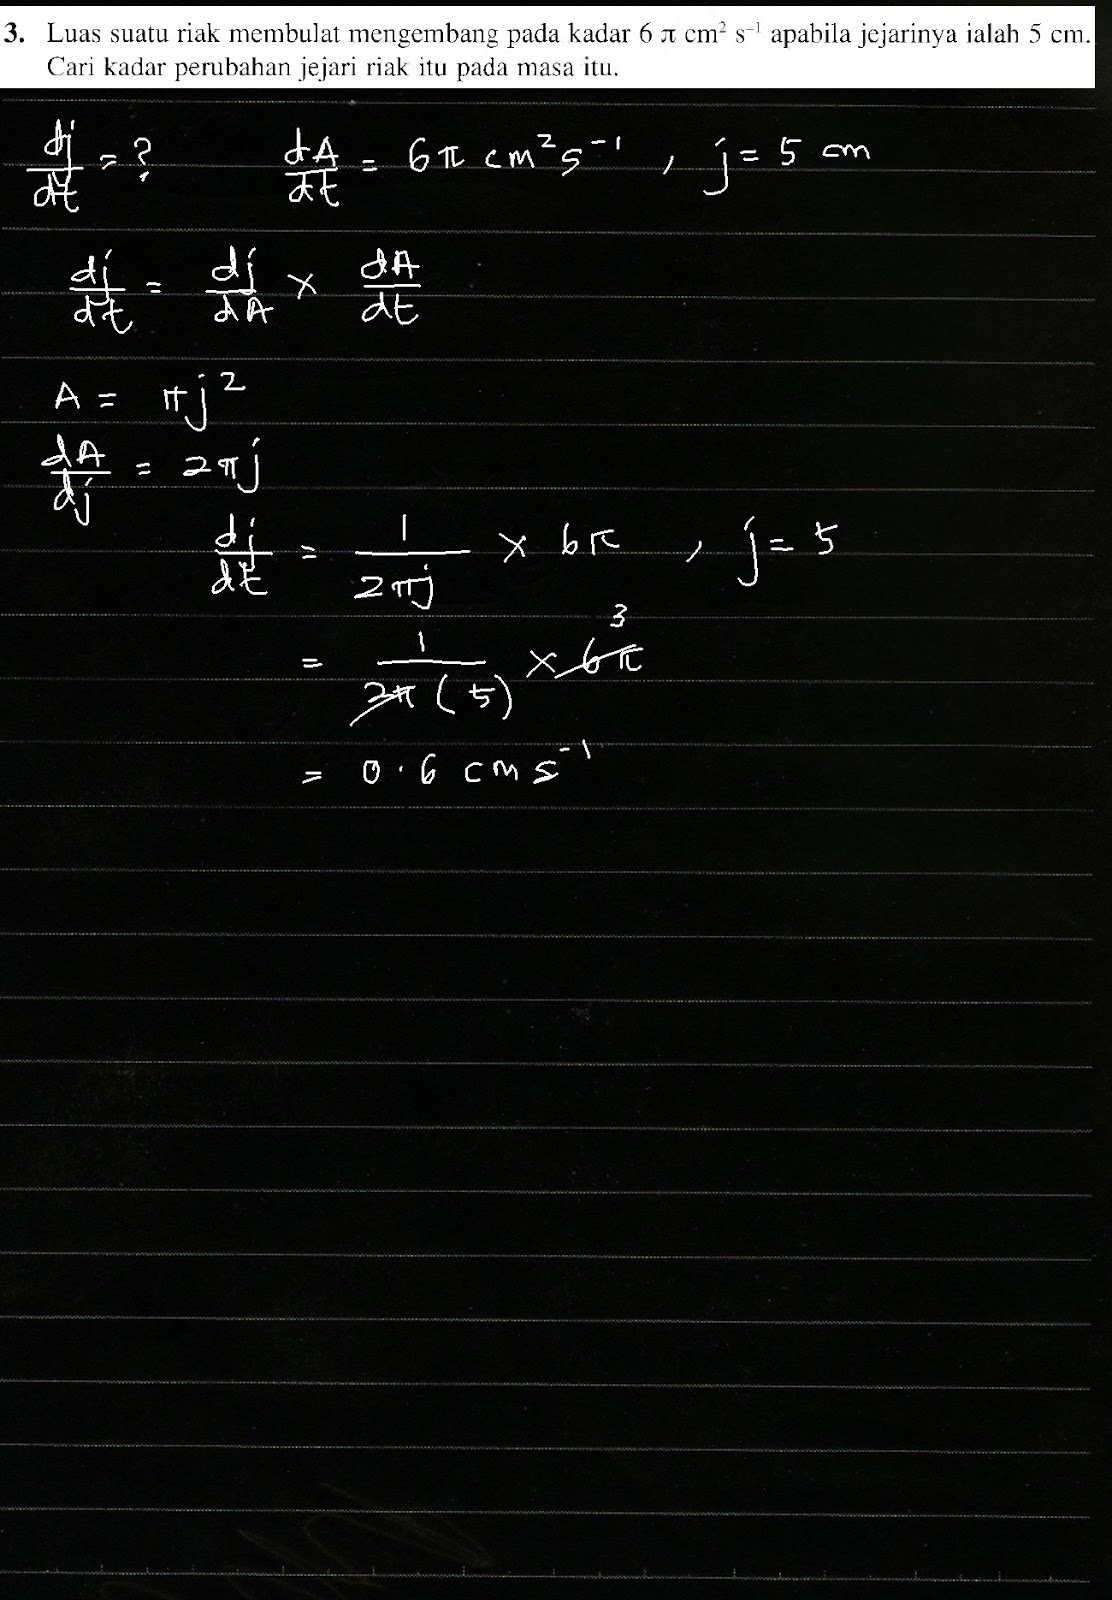 3. Luas suatu riak membulat mengembang pada kadar 6 π cm² s⁻¹ apabila jejarinya ialah 5 cm.
Cari kadar perubahan jejari riak itu pada masa itu.
dj/dt = ? dA/dt = 6π cm² s⁻¹ , j = 5 cm
dj/dt = dj/dA × dA/dt
A = πj²
dA/dj = 2πj
dj/dt = 1/2πj × 6π , j = 5
= 1/2π(5) × 6π 3
= 0.6 cm s⁻¹